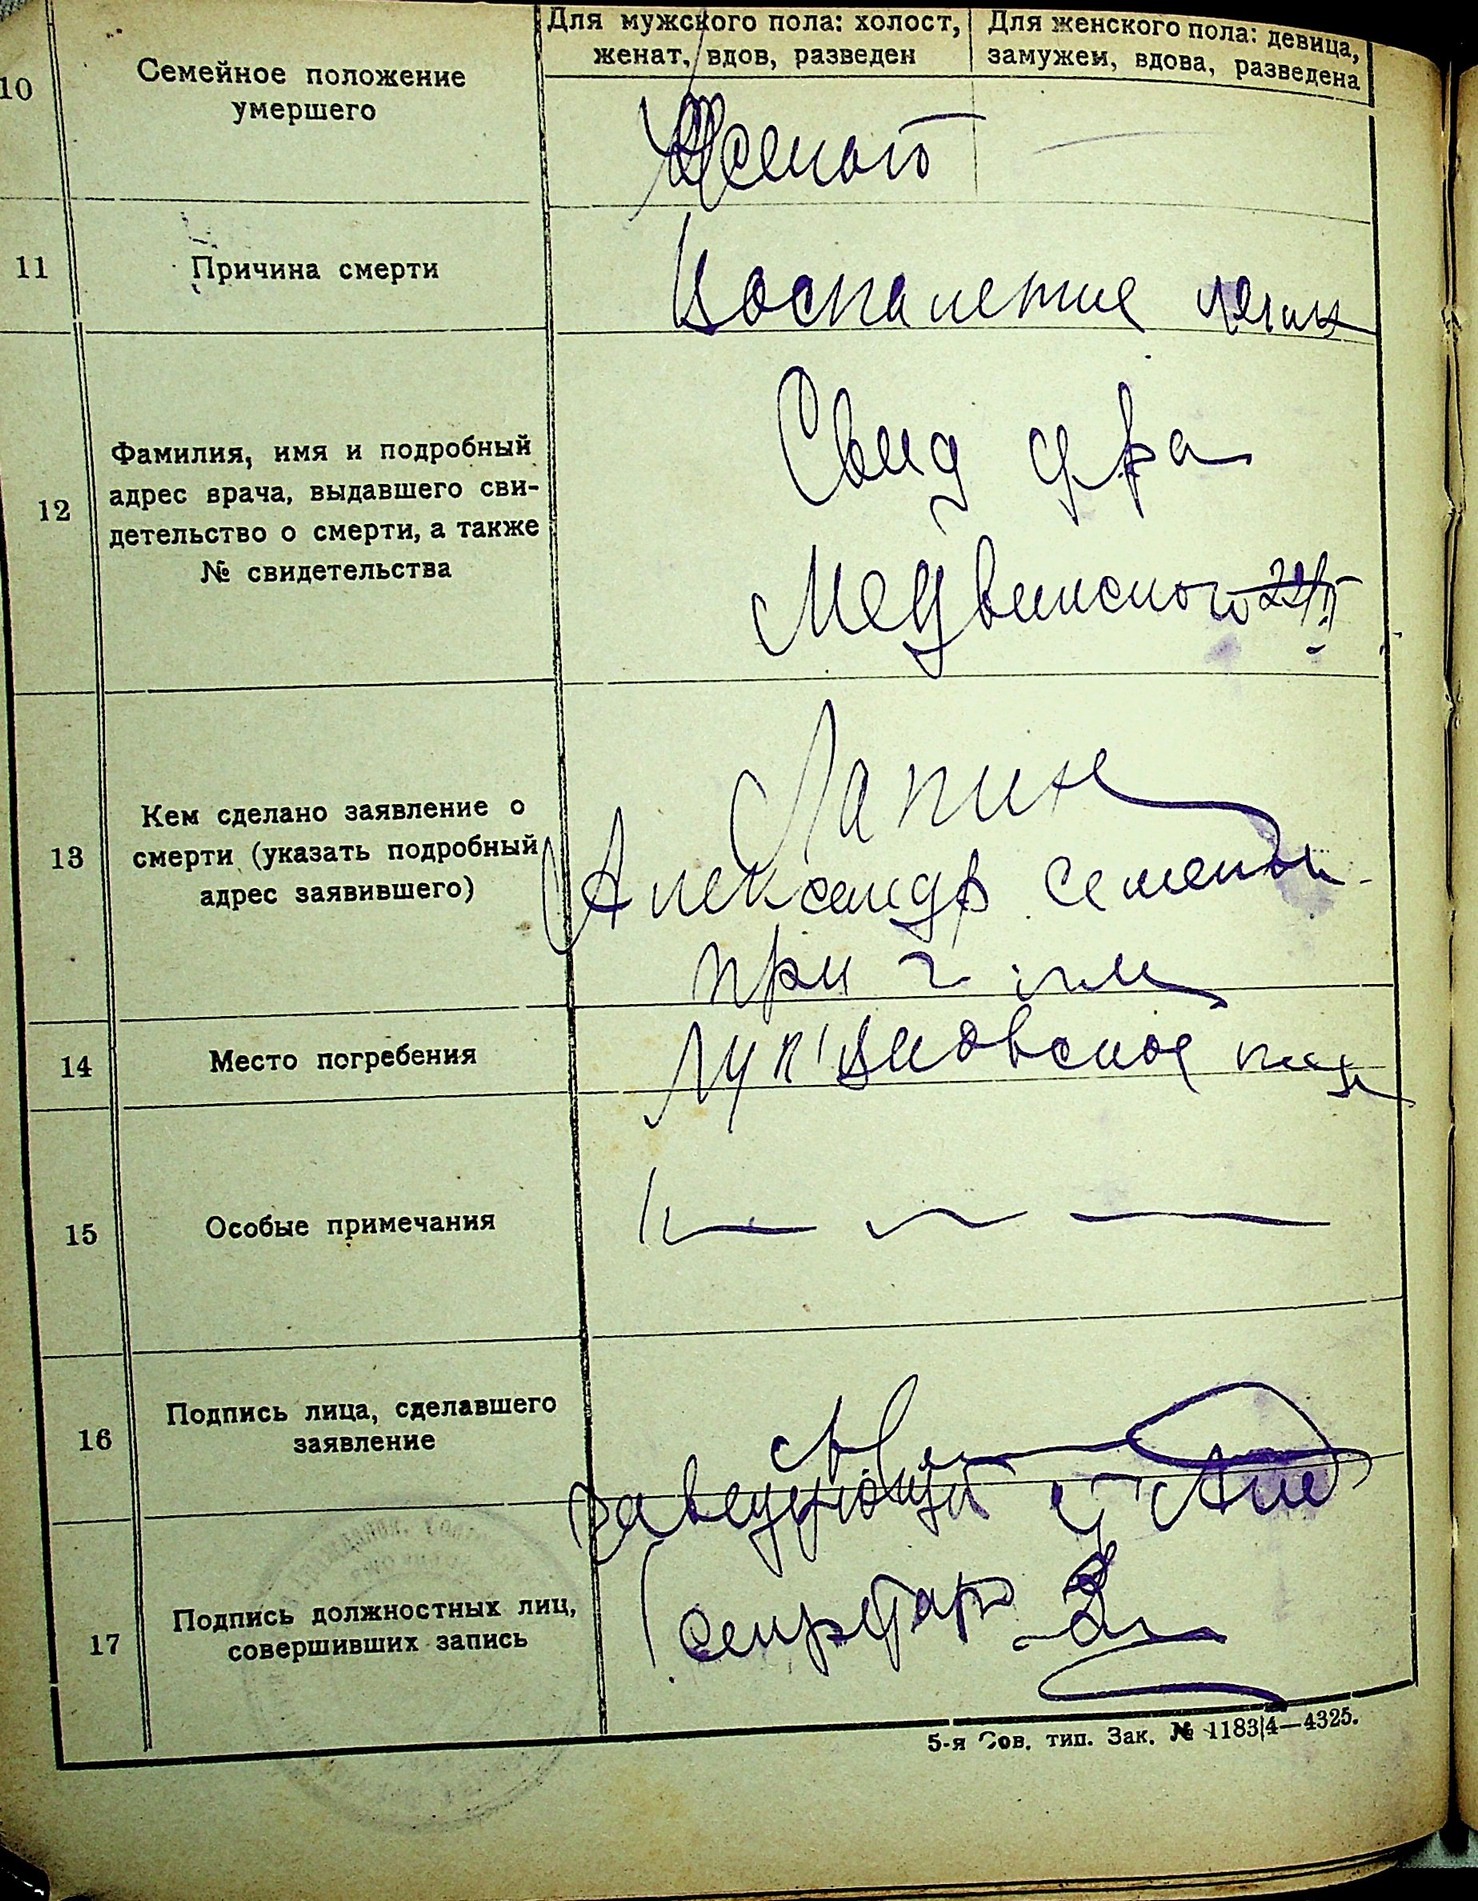 Для мужского пола: холост,
женат, вдов, разведен
Для женского пола: девица,
замужем, вдова, разведена
10
Семейное положение
умершего
Женат
11
Причина смерти
Воспаление легких
12
Фамилия, имя и подробный
адрес врача, выдавшего сви-
детельство о смерти, а также
№ свидетельства
Свид д-ра
Медвинского
13
Кем сделано заявление о
смерти (указать подробный
адрес заявившего)
Лапин
Александр Семенов
при
14
Место погребения
Лук'яновское
15
Особые примечания
16
Подпись лица, сделавшего
заявление
17
Подпись должностных лиц,
совершивших запись
Заведующий
Секретарь
5-я Сов. тип. Зак. № 1183|4—4325.